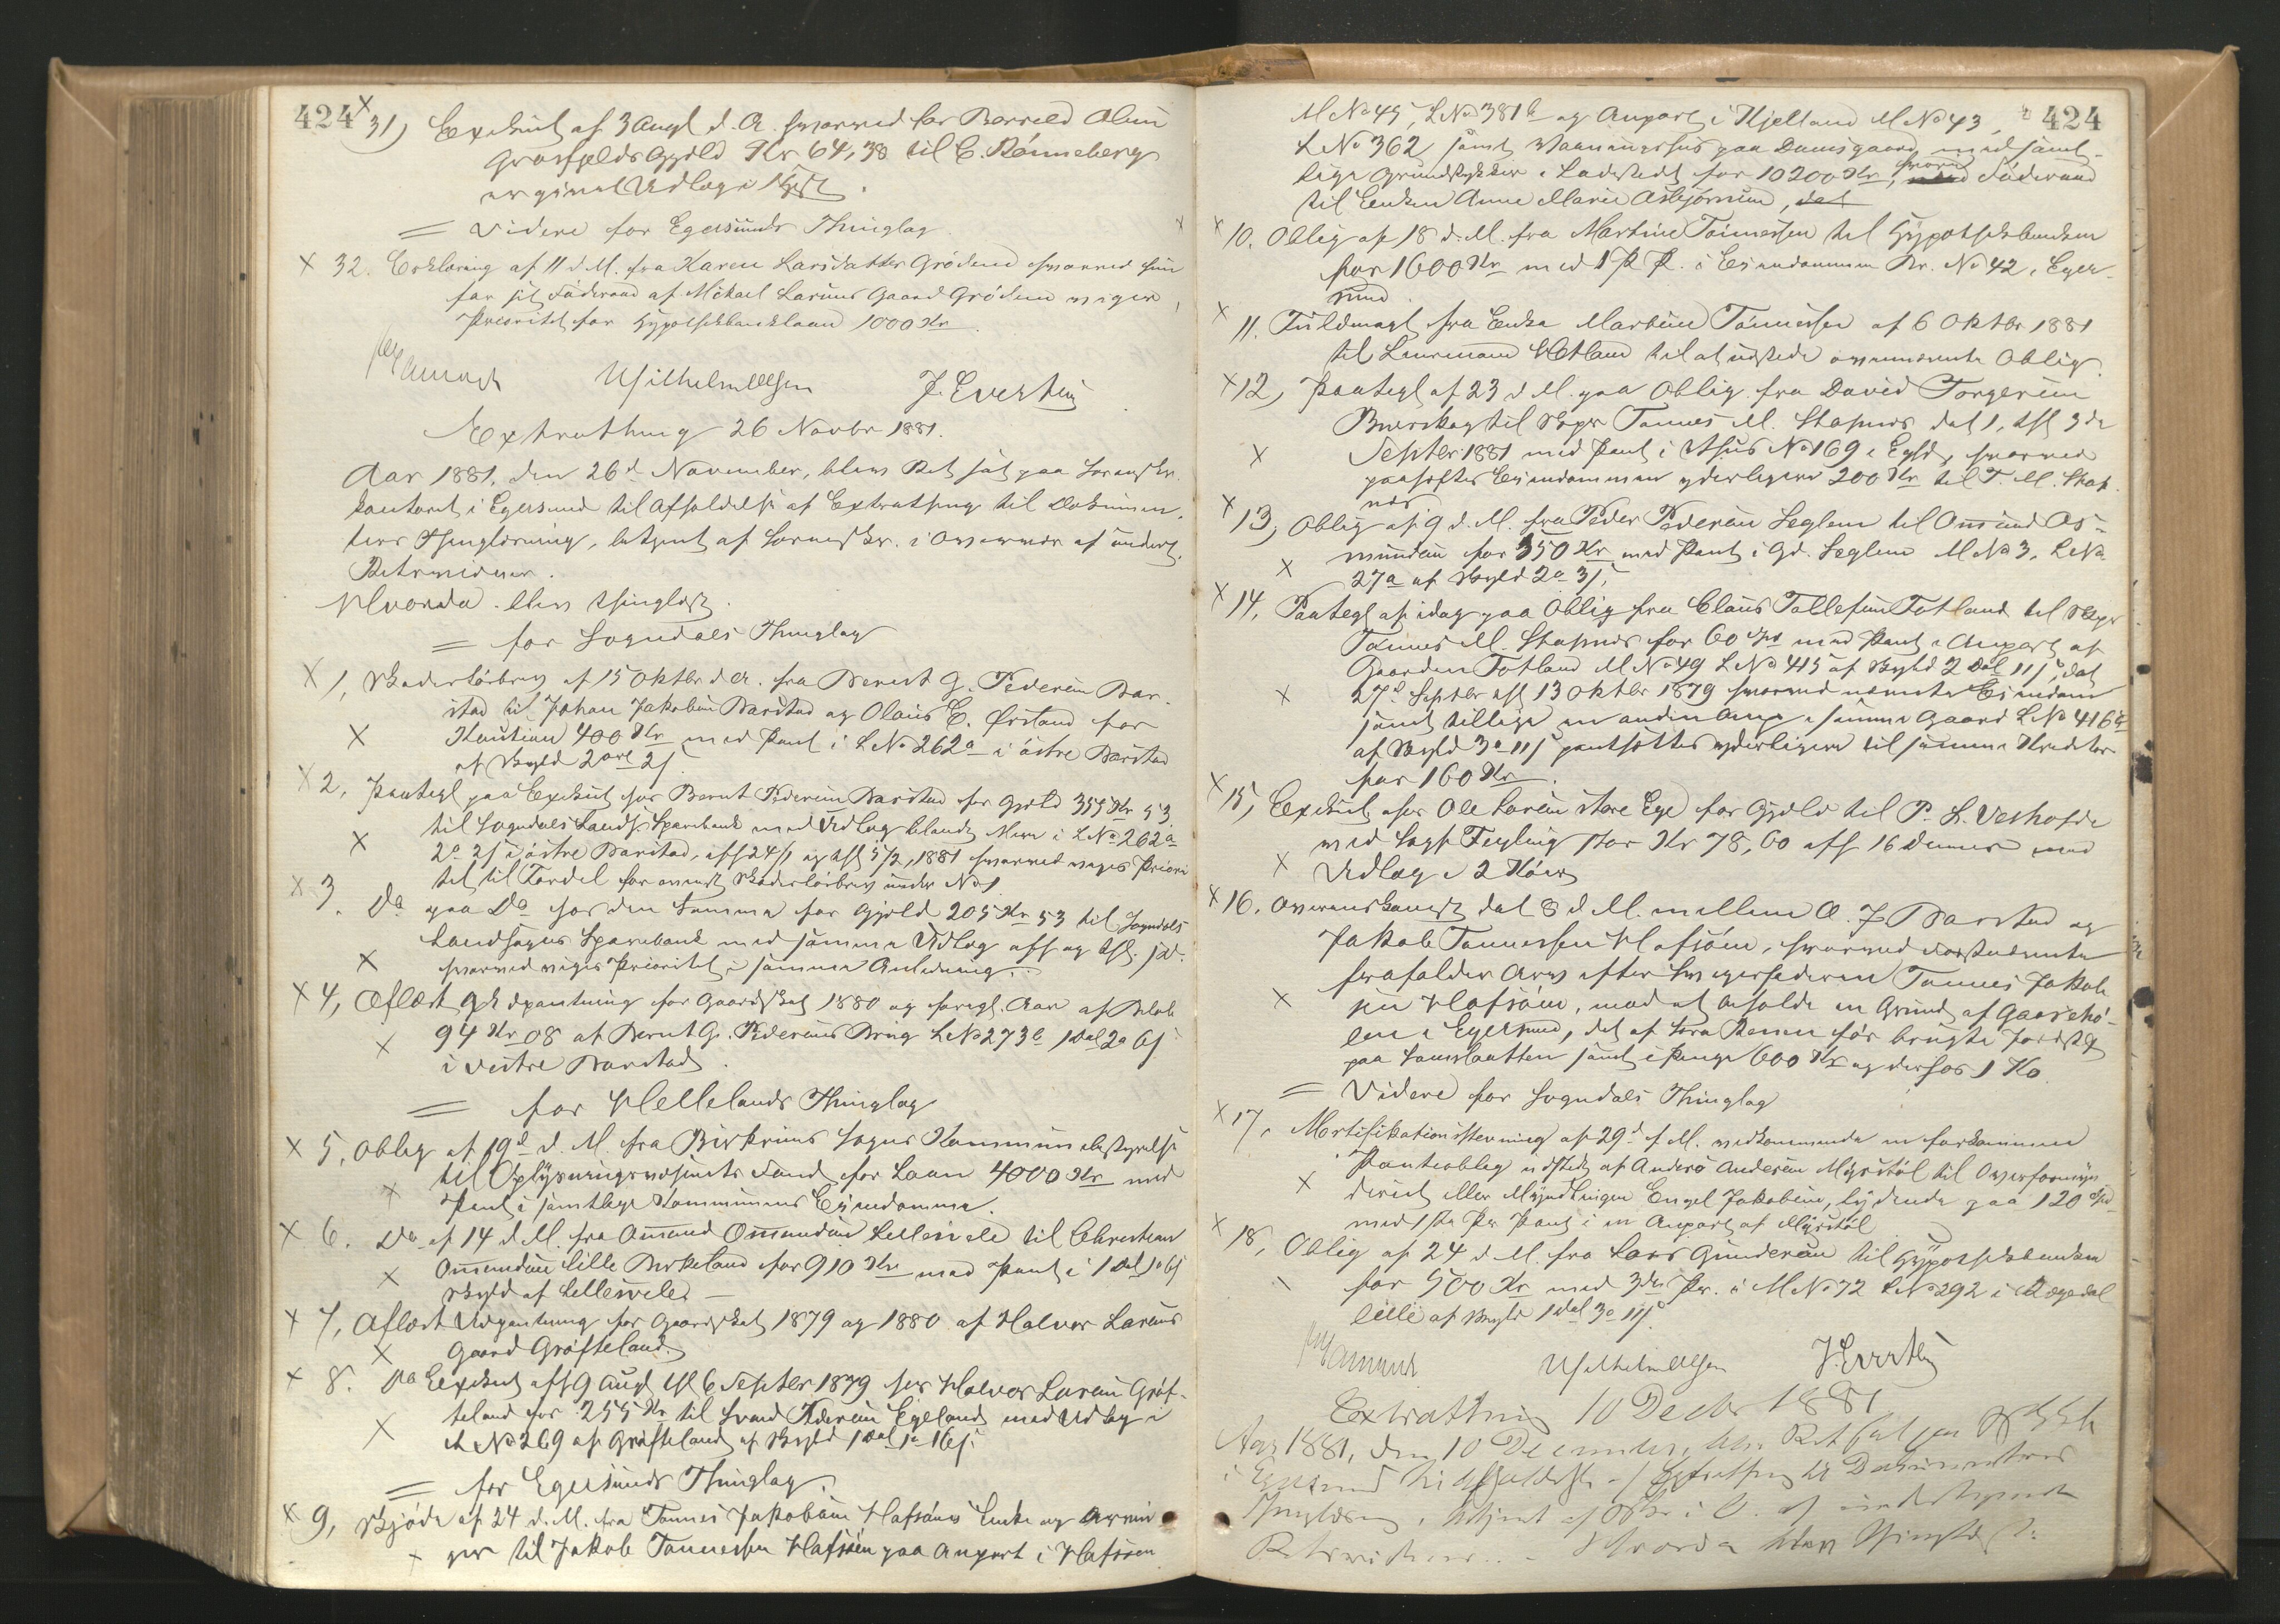 424
31) Exekut. af 3 Augt d. A. hvorved for Berreld Olsen
Grosfjelds Gjæld Kr 64,38 til C. Rønneberg
er givet Udlæg i
= Videre for Egersunds Thinglag
32. Erklæring af 11 d. M. fra Karen Larsdatter Grødem hvorved hun
for sit Føderaad af Mikael Larsens Gaard Grødem viger
Prioritet for Hypothekbanklaan 1000 Kr
Wilhelm Olsen J. Evertsen
Extrathing 26 Novbr 1881.
Aar 1881, den 26d November, blev Ret sat paa Sorenskr.
kontoret i Egersund til Afholdelse af Extrathing til Dokumen-
ters Thinglæsning, betjent af Sorenskr. i Overvær af undert.
Retsvidner.
Hvorda blev thinglæst.
= for Sogndals Thinglag
1, Skadesløsbrev af 15 Oktbr d. A. fra Bernt G. Pedersen Bar-
stad til Johan Jakobsen Barstad og Olaus E. Ørsland for
Kaution 400 Kr med Pant i LNo 262a i østre Barstad
af Skyld 2 ore 2 s
2, Paategt paa Exekut. hos Bernt Pedersen Barstad for Gjæld 355 Kr 53
til Sogndals Lands. Sparebank med Udlæg blandt Mere i LNo 262a
2o 2s i østre Barstad, afh 24/1 og thl 5/2 1881 hvorved viges Priori-
tet til Fordel for ovennt Skadesløsbrev under No 1
3. Do paa Do hos den Samme for Gjæld 205 Kr 53 til Sogndals
Landsogns Sparebank med samme Udlæg afh og thl. s. D.
hvorved viges Prioritet i samme Anledning.
4, Aflæst Udpantning for Gaardskat 1880 og foregt. Aar af Beløb
94 Kr 08 af Bernt G. Pedersens Brug LNo 273b 1 Dal 2o 6s
i vestre Barstad.
= for Hellelands Thinglag
5, Oblig af 19d d. M. fra Birkrims Sogns Kommunebestyrelse
til Oplysningsvæsenets Fond for Laan 4000 Kr med
Pant i samtlige Kommunens Eiendomme.
6. Do af 14 d. M. fra Omund Omundsen Lillevele til Christian
Omundsen lille Birkeland for 910 Kr med Pant i 1 Dal 1o 6s
Skyld af Lillevele. —
7, Aflæst Udpantning for Gaardskat 1879 og 1880 af Halvor Larsens
Gaard Grøfteland.
8. Do Exekut. afh 9 Augt thl 6 Septbr 1879 hos Halvor Larsen Grøf-
teland for 255 Kr til Svend Pedersen Egeland med Udlæg i
LNo 269 af Grøfteland af Skyld 1 Dal 1o 16s.
= for Egersunds Thinglag.
9, Skjøde af 24 d. M. fra Tønnes Jakobsen Hafsøens Enke og Arvin-
ger til Jakob Tønnessen Hafsøen paa Anpart i Hafsøen
424
MNo 45, LNo 381b og Anpart i Kjelland MNo 43,
LNo 362 samt Vaaningshus paa Damsgaard med samt-
lige Grundstykker i Ladestedet for 10200 Kr, hvorved Føderaad
til Enken Anne Marie Asbjørnsen,
10. Oblig af 18 d. M. fra Martine Tønnessen til Hypothekbanken
for 1600 Kr med 1 P P. i Eiendommen Br. No 42 i Eger-
sund
11. Fuldmagt fra Enke Martine Tønnessen af 6 Oktbr 1881
til Lensmand Hetland til at udstede ovennævnte Oblig.
12, Paategt af 23 d M. paa Oblig fra David Torgersen
til Skpr Tønnes M. Stapnes dat 1, thl 3de
Septbr 1881 med Pant i Hus No 169 i Egsd, hvorved
pantsættes Eiendommen yderligere 200 Kr til T. M. Stap-
nes
13, Oblig af 9 d. M. fra Peder Pedersen Seglem til Omund As-
mundsen for 350 Kr med Pant i Gd. Seglem MNo 3, LNo
27a af Skyld 2o 3s,
14, Paategt af idag paa Oblig fra Claus Tollefsen Totland til Skpr
Tønnes M. Stapnes for 60 Spd med Pant i Anpart af
Gaarden Totland MNo 49 LNo 415 af Skyld 2 Dal 11s, dat
27d Septbr thl 13 Oktbr 1879 hvorved nævnte Eiendom
samt tillige en anden Anp. i samme Gaard LNo 416a
af Skyld 3o 11s pantsættes yderligere til samme Kreditor
for 160 Kr.
15, Exekut. hos Ole Larsen store Ege for Gjæld til P. L. Veshovde
ved Sagf. Feyling stor Kr 78,60 afh 16 dennes med
Udlæg i 2 Køer
16. Overenskomst dat 8 d M. mellem O. J. Barstad og
Jakob Tønnessen Hafsøen, hvorved Førstnævnte
frafalder Arv efter Svigerfaderen Tønnes Jakob-
sen Hafsøen, mod at beholde en Grund af Gaasehø-
len i Egersund, det af Lara Bemer før brugte Jordst.
paa Lamslaatten samt i Penge 600 Kr og derhos 1 Ko
= Videre for Sogndals Thinglag
17, Mortifikationsstevning af 29d f. M. vedkommende en forkommen
Panteoblig udstedt af Anders Andersen Mysstøl til Overformyn-
deriet eller Myndlingen Engel Jakobsen, lydende paa 120 Spd
med 1ste Pr. Pant i en Anpart af Mysstøl
18, Oblig af 24 d M. fra Lars Gundersen til Hypothekbanken
for 500 Kr med 3die Pr. i MNo 72 LNo 292 i Rægedal
lille af Skyld 1 Dal 3o 11s.
Wilhelm Olsen J. Evertsen
Extrathing 10 Decbr 1881
Aar 1881, den 10 December, blev Ret sat paa
i Egersund til Afholdelse af Extrathing til Documenters
Thinglæsn., betjent af i O. af undertegnede
Retsvidner. . – Hvorda blev Thinglæst: